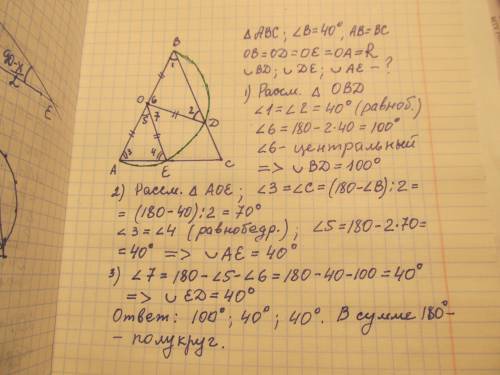 90-x
2
E
B
1
O 6
5 7
2
D
3
4
A
E
C
Δ ABC; ∠B=40°, AB=BC
OB=OD=OE=OA=R
∪BD; ∪DE; ∪AE - ?
1) Рассм. Δ OBD
∠1=∠2=40° (равноб.)
∠6=180-2·40=100°
∠6- центральный
=> ∪BD=100°
2) Рассм. Δ AOE; ∠3=∠C=(180-∠B):2=
=(180-40):2=70°
∠3=∠4 (равнобедр.); ∠5=180-2·70=
=40° => ∪AE=40°
3) ∠7=180-∠5-∠6=180-40-100=40°
=> ∪ED=40°
Ответ: 100°; 40°; 40°. В сумме 180°-
- полукруг.